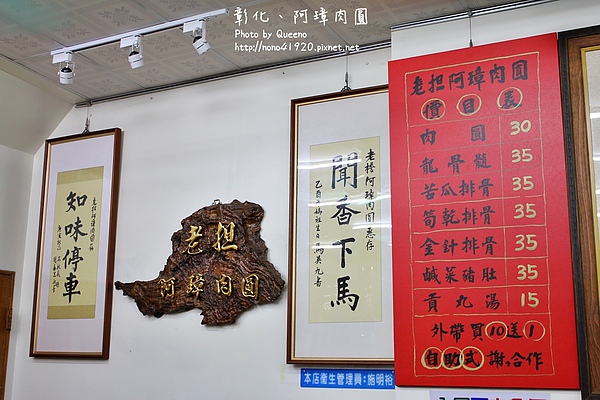 彰化、阿璋肉圓
Photo by Queeno
http://nono41920.pixnet.net
知味停車
老担
阿璋肉圓
老担阿璋肉圓惠存
聞香下馬
乙酉年媽祖生日馬英九書
本店衛生管理員:施明裕
老担阿璋肉圓
價目表
肉圓 30
龍骨髓 35
苦瓜排骨 35
筍乾排骨 35
金針排骨 35
鹹菜豬肚 35
貢丸湯 15
外帶買10送1
自助式 謝謝合作